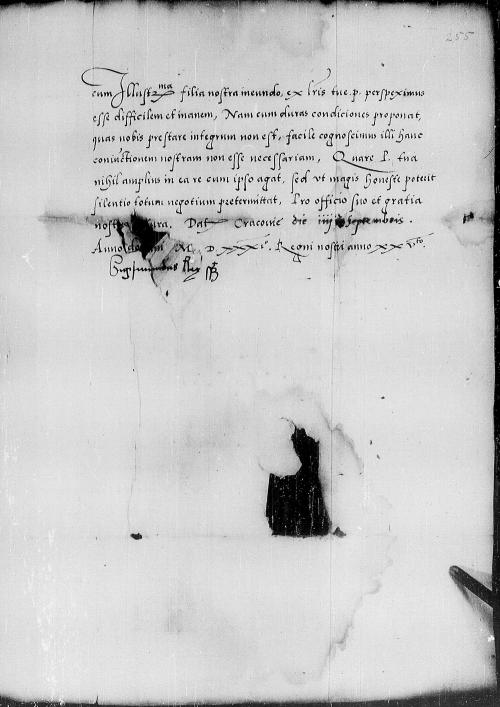 255
cum Illustr^ma filia nostra ineundo, ex lris tue p. perspeximus
esse difficilem et inanem, Nam cum duras condiciones proponat,
quas nobis prestare integrum non est, facile cognoscimus illi hanc
coniunctionem nostram non esse necessariam, Quare P. tua
nihil amplius in ea re cum ipso agat, sed vt magis honeste poterit
silentio totum negotium pretermittat, Pro officio suo et gratia
nostra Dat Cracovie die iiij septembris.
Anno Regni nostri anno xxv^to.
Sigismundus Rex